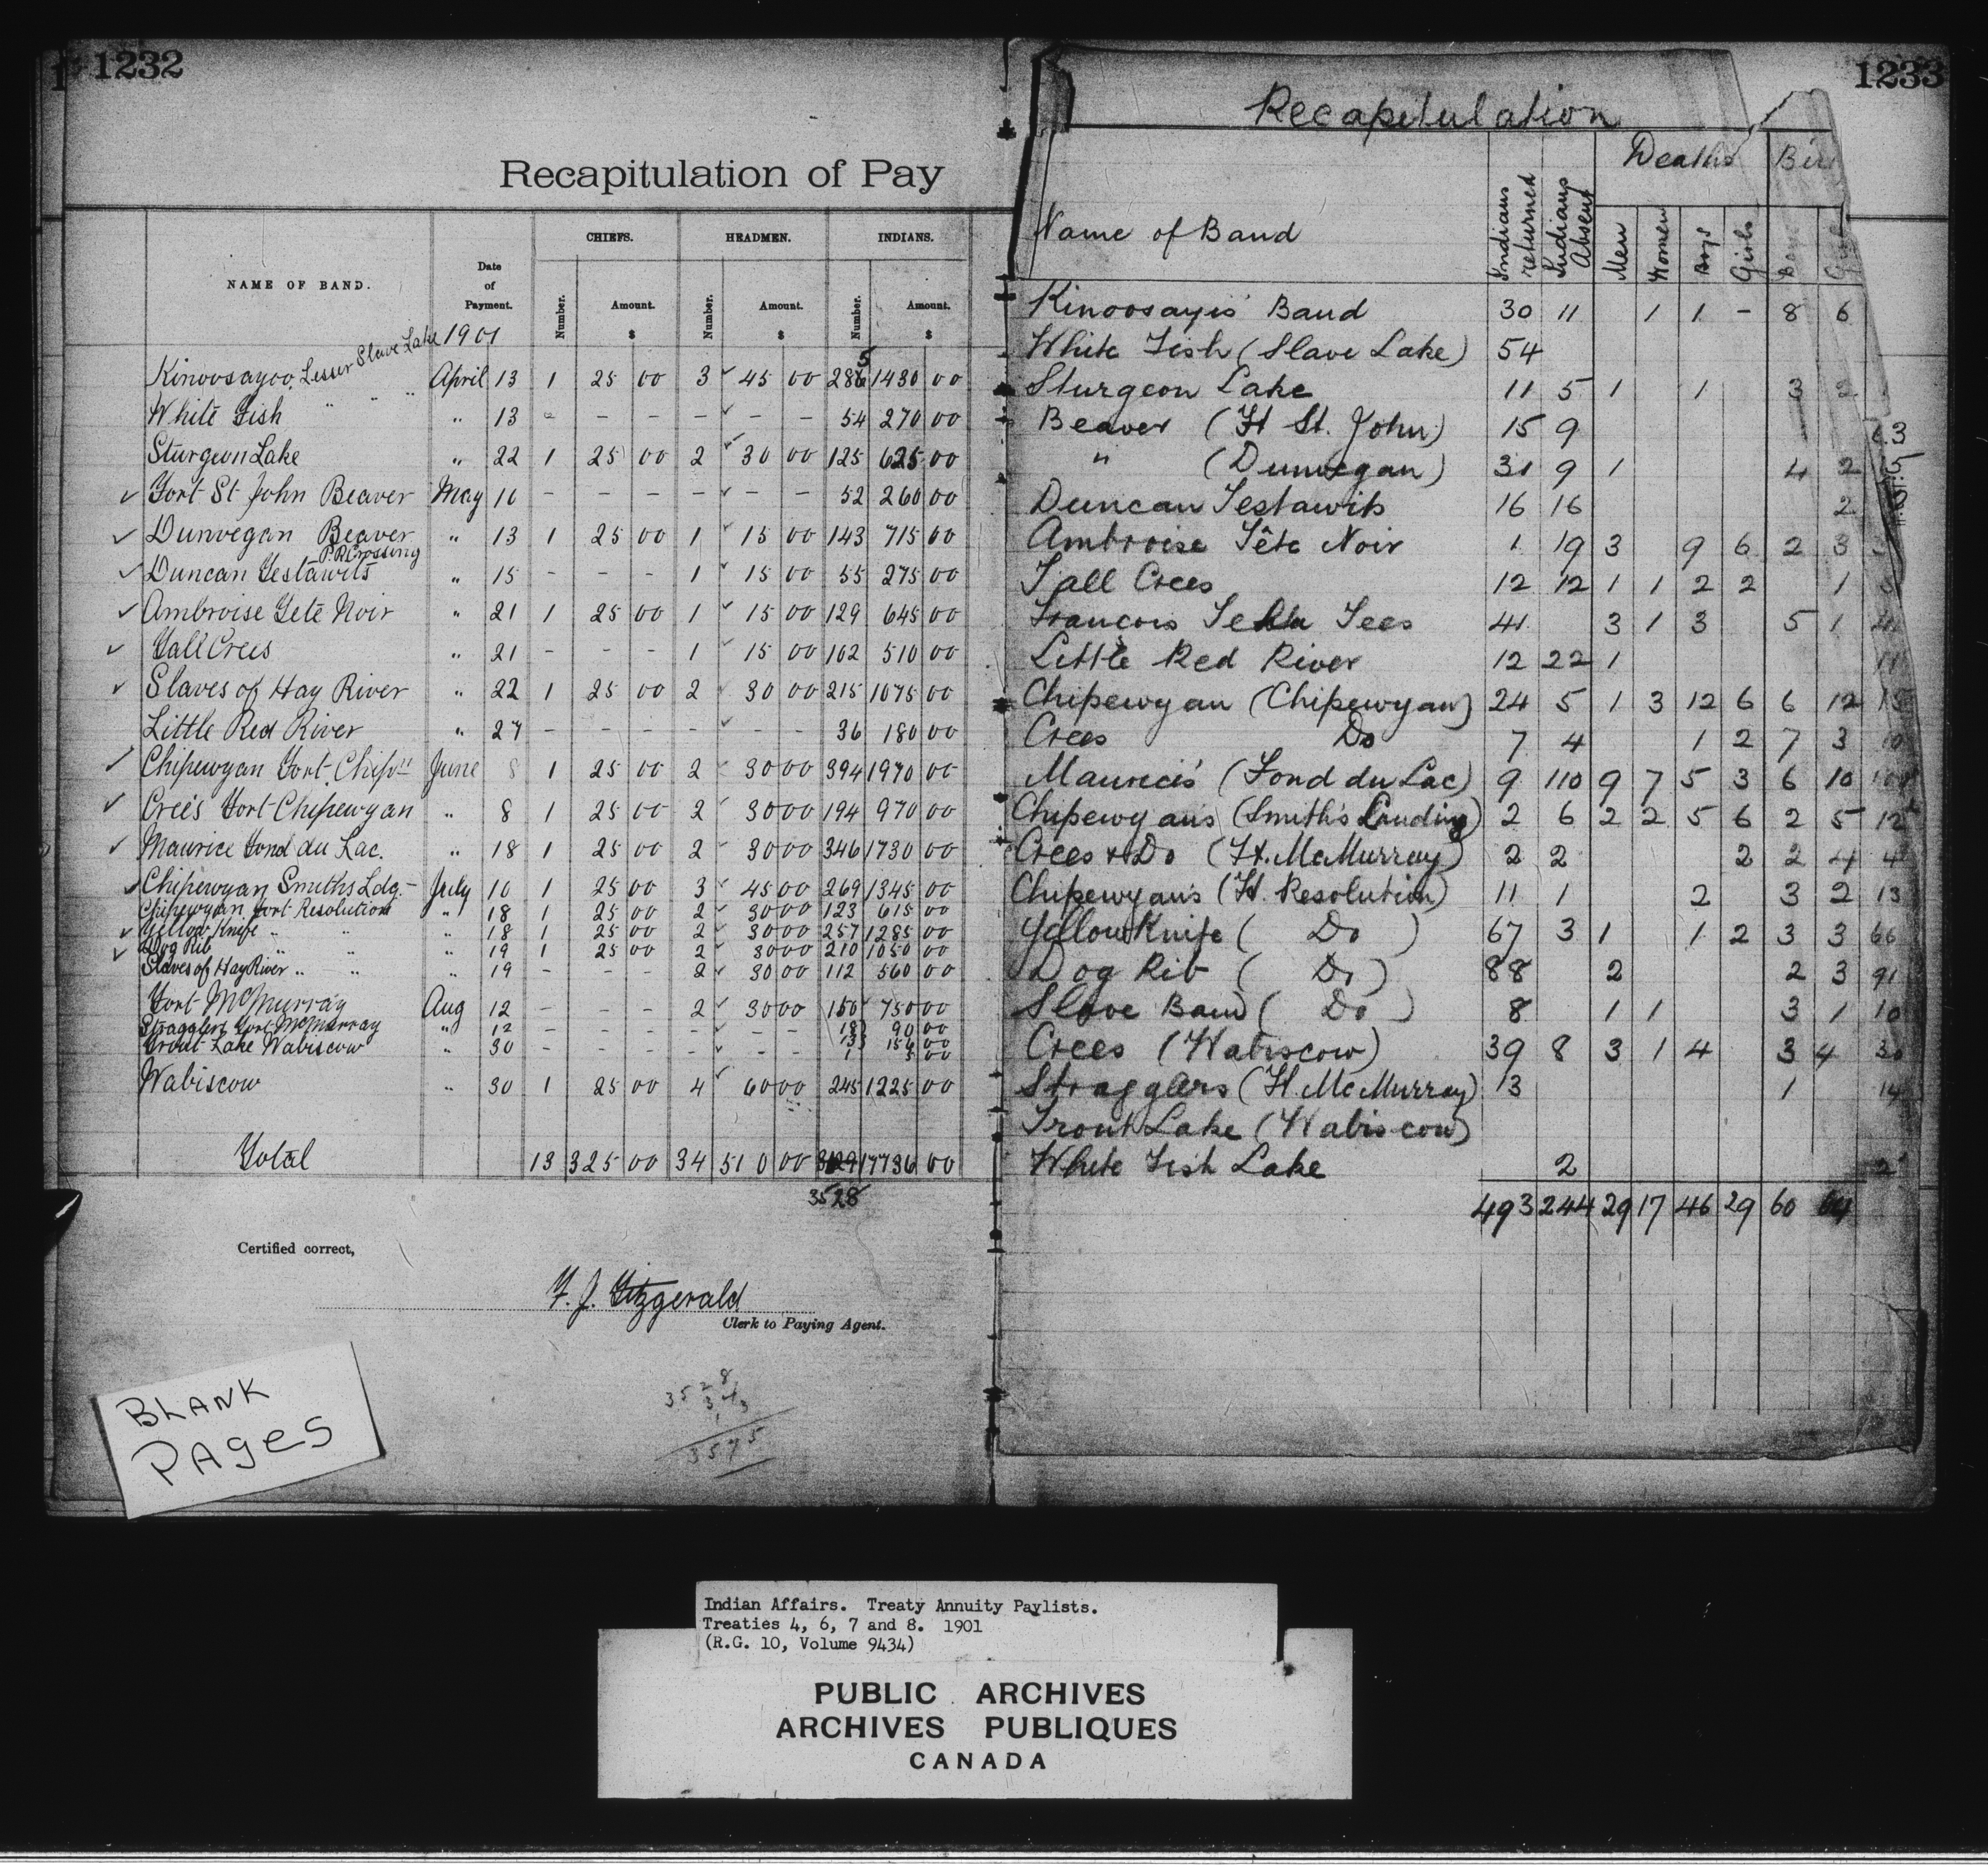 1232
Recapitulation of Pay
NAME OF BAND. Date of Payment. CHIEFS. HEADMEN. INDIANS.
Number. Amount. $ Number. Amount. $ Number. Amount. $
1901
Kinoosayoo, Lesser Slave Lake April 13 1 25 00 3 45 00 286 5 1430 00
White Fish " " " " 13 - - - - - - 54 270 00
Sturgeon Lake " 22 1 25 00 2 30 00 125 625 00
Fort St John Beaver May 10 - - - - - - 52 260 00
Dunvegan Beaver " 13 1 25 00 1 15 00 143 715 00
Duncan Testawits P.R. Crossing " 15 - - - 1 15 00 55 275 00
Ambroise Tete Noir " 21 1 25 00 1 15 00 129 645 00
Tall Crees " 21 - - - 1 15 00 102 510 00
Slaves of Hay River " 22 1 25 00 2 30 00 215 1075 00
Little Red River " 27 - - - - - - 36 180 00
Chipewyan Fort Chipn June 8 1 25 00 2 30 00 394 1970 00
Crees Fort Chipewyan " 8 1 25 00 2 30 00 194 970 00
Maurice Fond du Lac. " 18 1 25 00 2 30 00 346 1730 00
Chipewyan Smiths Ldg. July 10 1 25 00 3 45 00 269 1345 00
Chipewyan Fort Resolution " 18 1 25 00 2 30 00 123 615 00
Yellow Knife " " " 18 1 25 00 2 30 00 257 1285 00
Dog Rib " " " 19 1 25 00 2 30 00 210 1050 00
Slaves of Hay River " " " 19 - - - 2 30 00 112 560 00
Fort McMurray Aug 12 - - - 2 30 00 150 750 00
Stragglers Fort McMurray " 12 - - - - - - 18 90 00
Trout Lake Wabiscow " 30 - - - - - -
Wabiscow " 30 1 25 00 4 60 00 245 1225 00
Total 13 325 00 34 510 00 17736 00
3528
Certified correct,
F. J. Fitzgerald
Clerk to Paying Agent.
3528
3575
BLANK
PAGES
1233
Recapitulation
Name of Band Indians returned Indians Absent Deaths Bir
Men Women Boys Girls Boys
Kinoosayis' Band 30 11 1 1 - 8 6
White Fish (Slave Lake) 54
Sturgeon Lake 11 5 1 1 3 2
Beaver (Ft St. John) 15 9
" (Dunvegan) 31 9 1 4 2
Duncan Testawits 16 16 2
Ambroise Tête Noir 1 19 3 9 6 2 3
Tall Crees 12 12 1 1 2 2 1
François Tees 41 3 1 3 5 1
Little Red River 12 22 1 11
Chipewyan (Chipewyan) 24 5 1 3 12 6 6 12 15
Crees Do 7 4 1 2 7 3 10
Maurice's (Fond du Lac) 9 110 9 7 5 3 6 10
Chipewyans (Smith's Landing) 2 6 2 2 5 6 2 5 12
Crees & Do (Ft. McMurray) 2 2 2 2 4 4
Chipewyans (Ft. Resolution) 11 1 2 3 2 13
Yellow Knife ( Do ) 67 3 1 1 2 3 3 66
Dog Rib ( Do ) 88 2 2 3 91
Slave Band ( Do ) 8 1 1 3 1 10
Crees (Wabiscow) 39 8 3 1 4 3 4 30
Stragglers (Ft McMurray) 13 1 14
Trout Lake (Wabiscow)
White Fish Lake 2 2
493 244 29 17 46 29 60 64
Indian Affairs. Treaty Annuity Paylists.
Treaties 4, 6, 7 and 8. 1901
(R.G. 10, Volume 9434)
PUBLIC ARCHIVES
ARCHIVES PUBLIQUES
CANADA